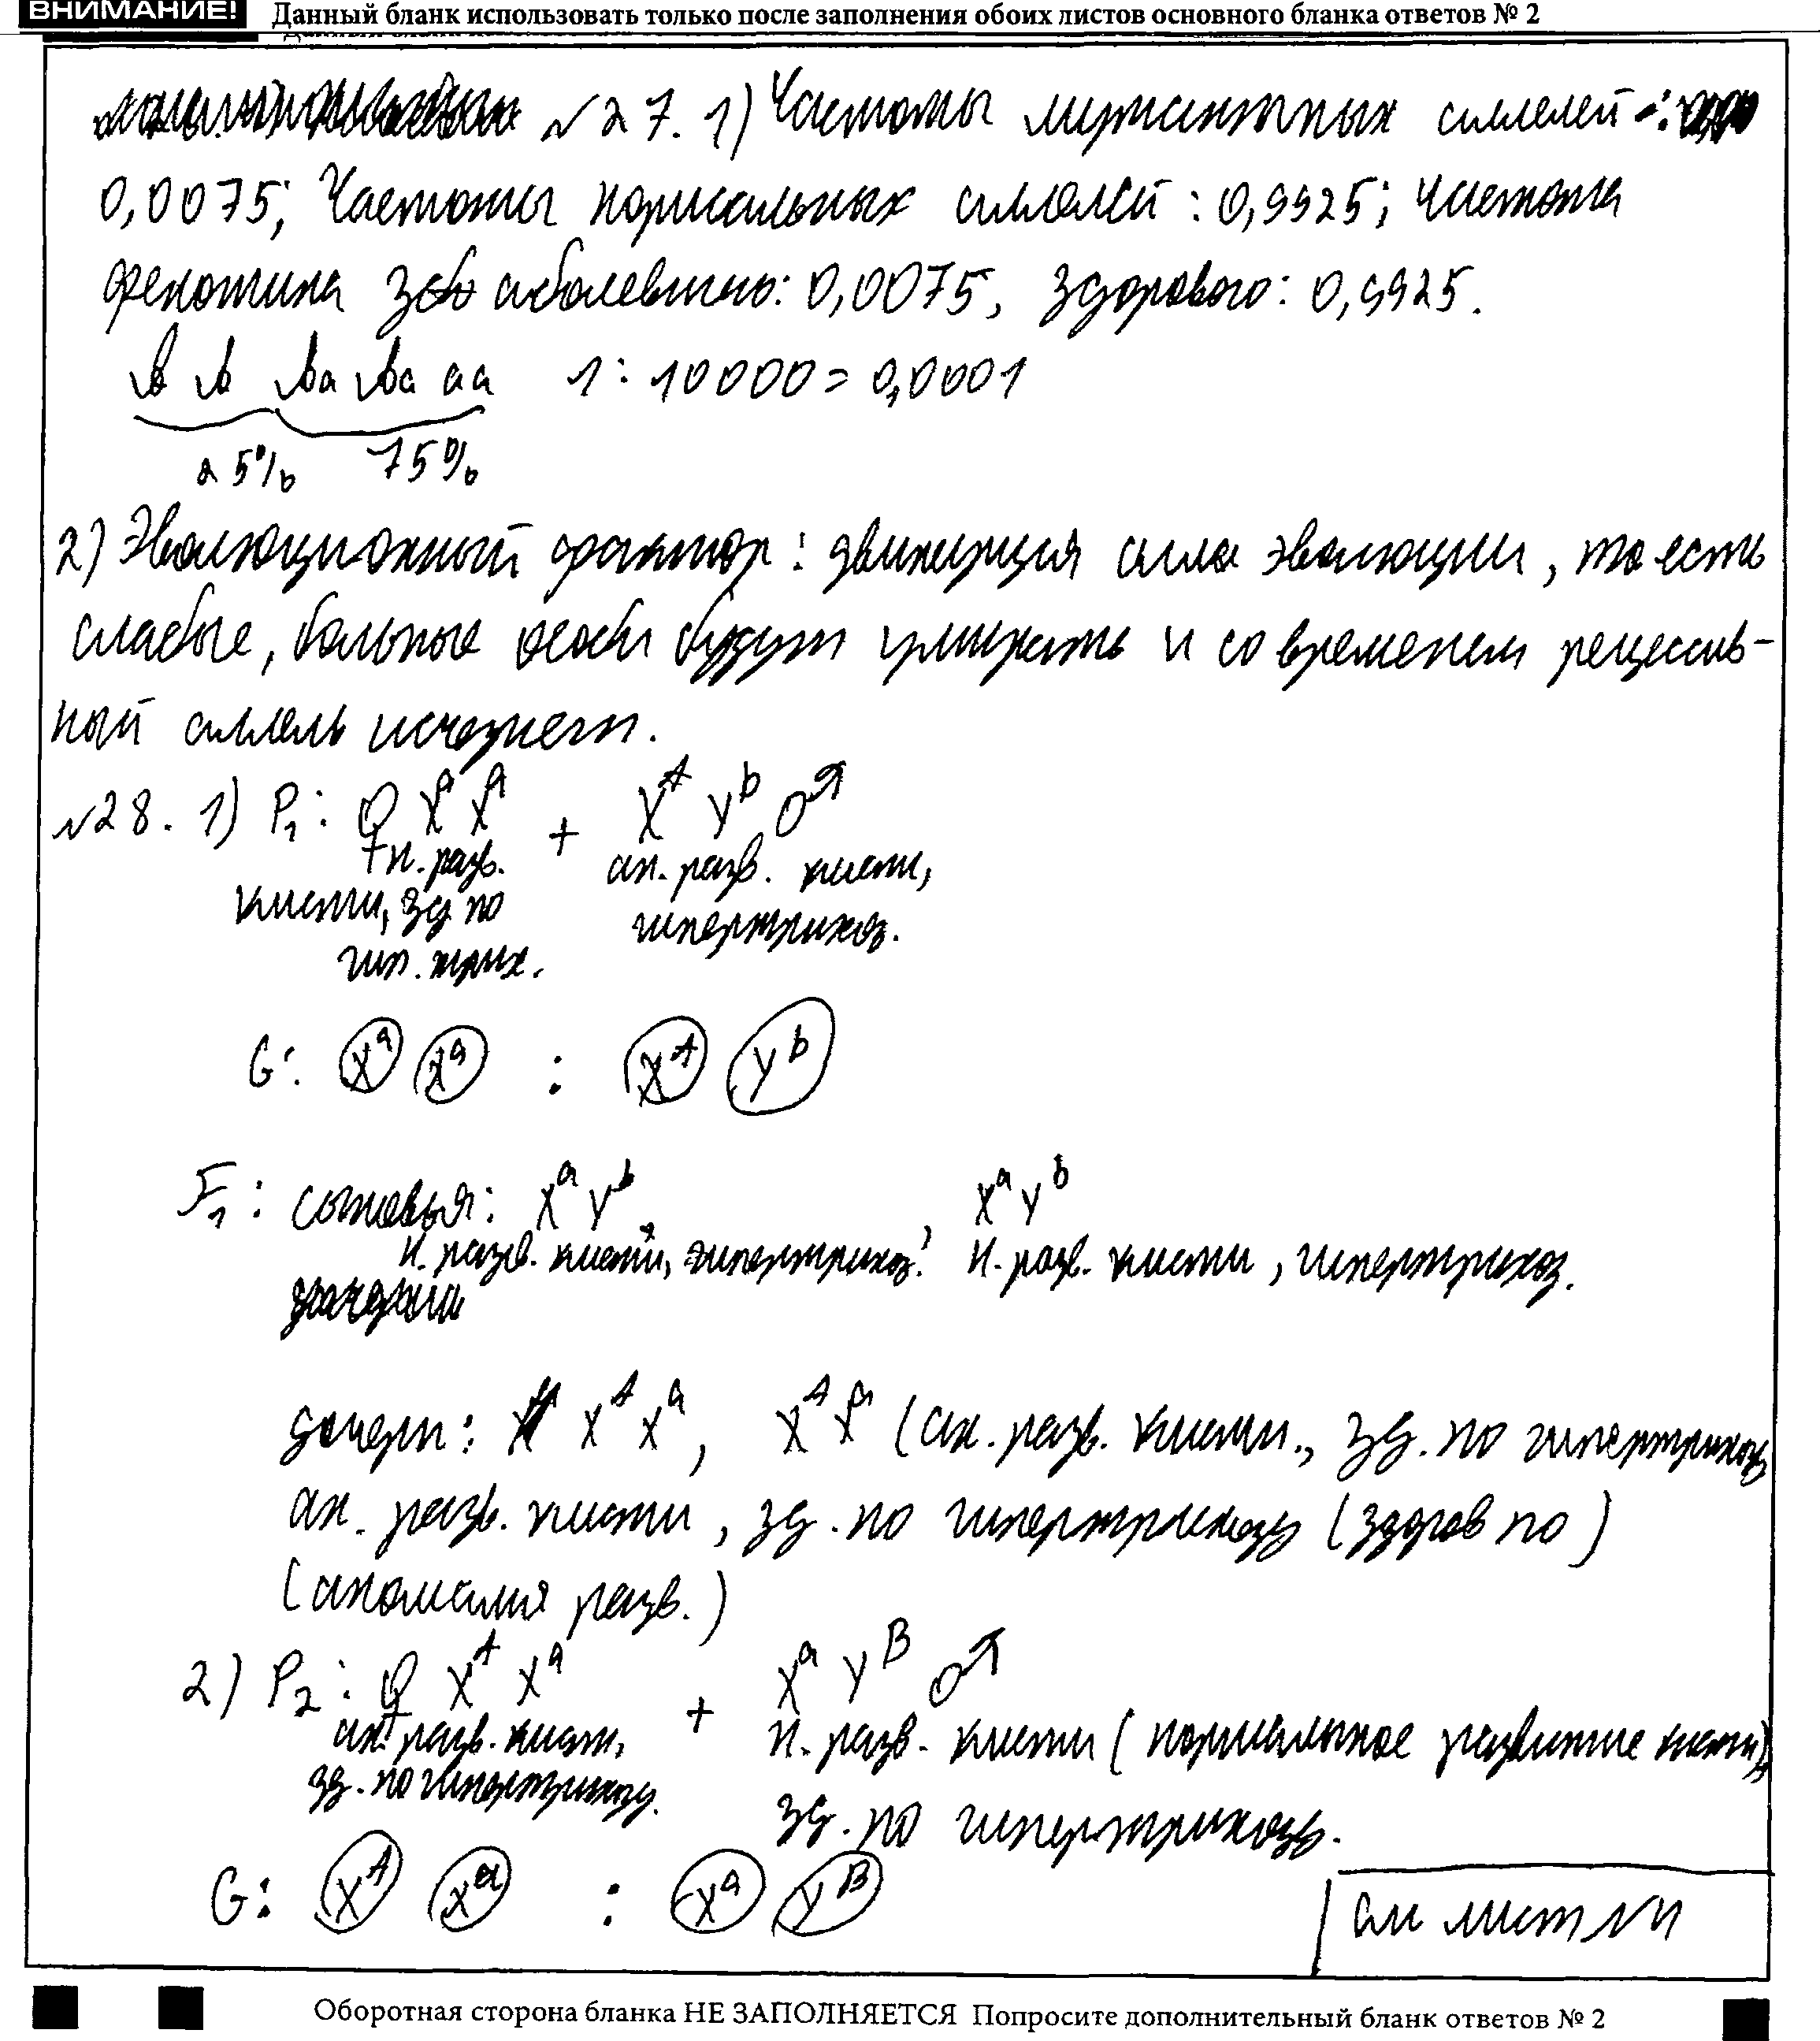 ВНИМАНИЕ! Данный бланк использовать только после заполнения обоих листов основного бланка ответов № 2
№27. 1) Частоты мутантных аллелей:
0,0075; Частоты нормальных аллелей: 0,9925; частота
фенотипа заболевшего: 0,0075, здорового: 0,9925.
Aa Aa aa 1:10000=0,0001
25% 75%
2) Эволюционный фактор: движущая сила эволюции, то есть
слабые, больные особи будут умирать и со временем рецессив-
ный аллель исчезнет.
№28. 1) P₁: ♀ Xᵃ Xᵃ + Xᴬ Yᵇ ♂
н. разв. ан. разв. кисти,
кисти, зд по гипертрихоз.
гип. трих.
G: Xᵃ Xᵃ : Xᴬ Yᵇ
F₁: сыновья: Xᵃ Yᵇ, Xᵃ Yᵇ
н. разв. кисти, гипертрихоз. н. разв. кисти, гипертрихоз.
дочери: Xᴬ Xᵃ, Xᴬ Xᵃ (ан. разв. кисти., зд. по гипертрихозу
ан. разв. кисти, зд. по гипертрихозу (здоров по)
(аномалия разв.)
2) P₂: ♀ Xᴬ Xᵃ + Xᵃ Yᴮ ♂
ан. разв. кисти, н. разв. кисти (нормальное развитие кисти),
зд. по гипертрихозу. зд. по гипертрихозу.
G: Xᴬ Xᵃ : Xᵃ Yᴮ
см лист №4
Оборотная сторона бланка НЕ ЗАПОЛНЯЕТСЯ Попросите дополнительный бланк ответов № 2